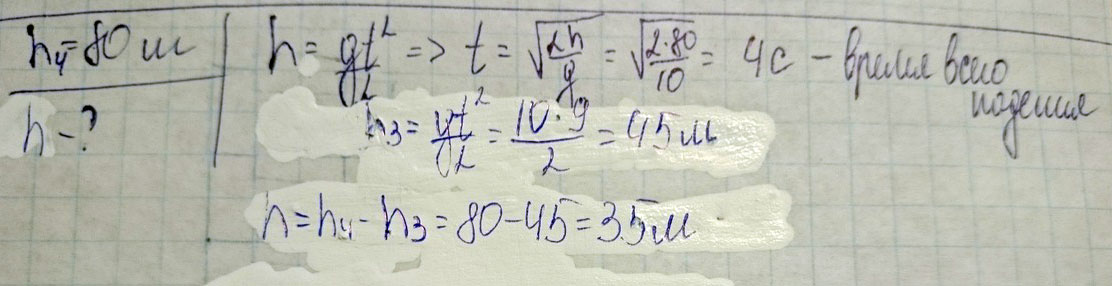 h₄=80м h = gt²/2 => t = √(2h/g) = √(2·80/10) = 4с – время всего падения
h – ? h₃ = gt²/2 = 10·9/2 = 45м
h = h₄ – h₃ = 80 – 45 = 35м